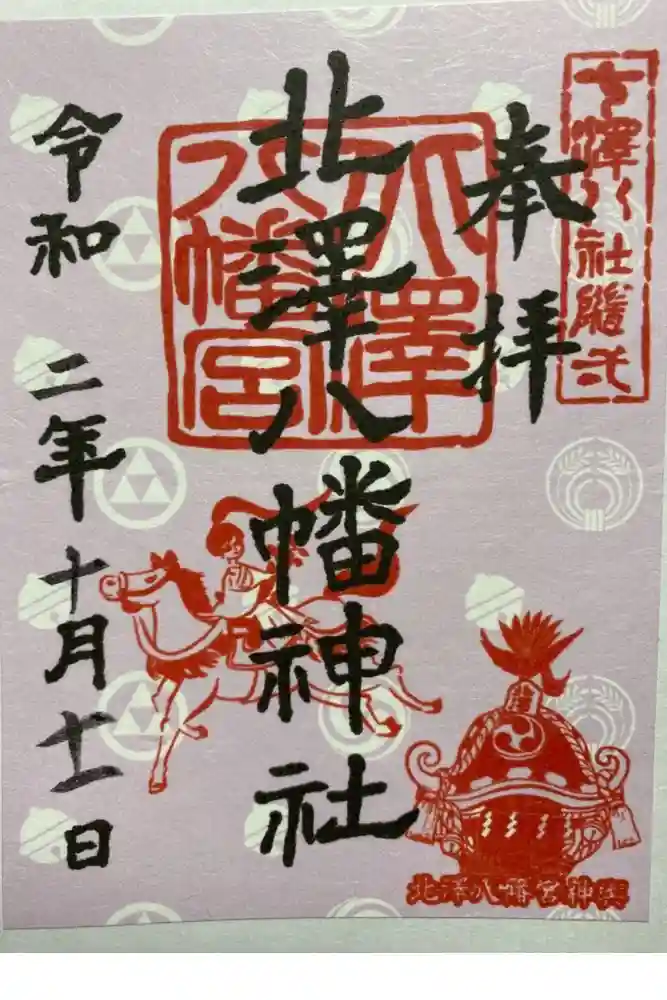 七澤八社隨弌
奉拝
北澤
八幡宮
北澤八幡神社
令和二年十月十一日
北澤八幡宮神輿